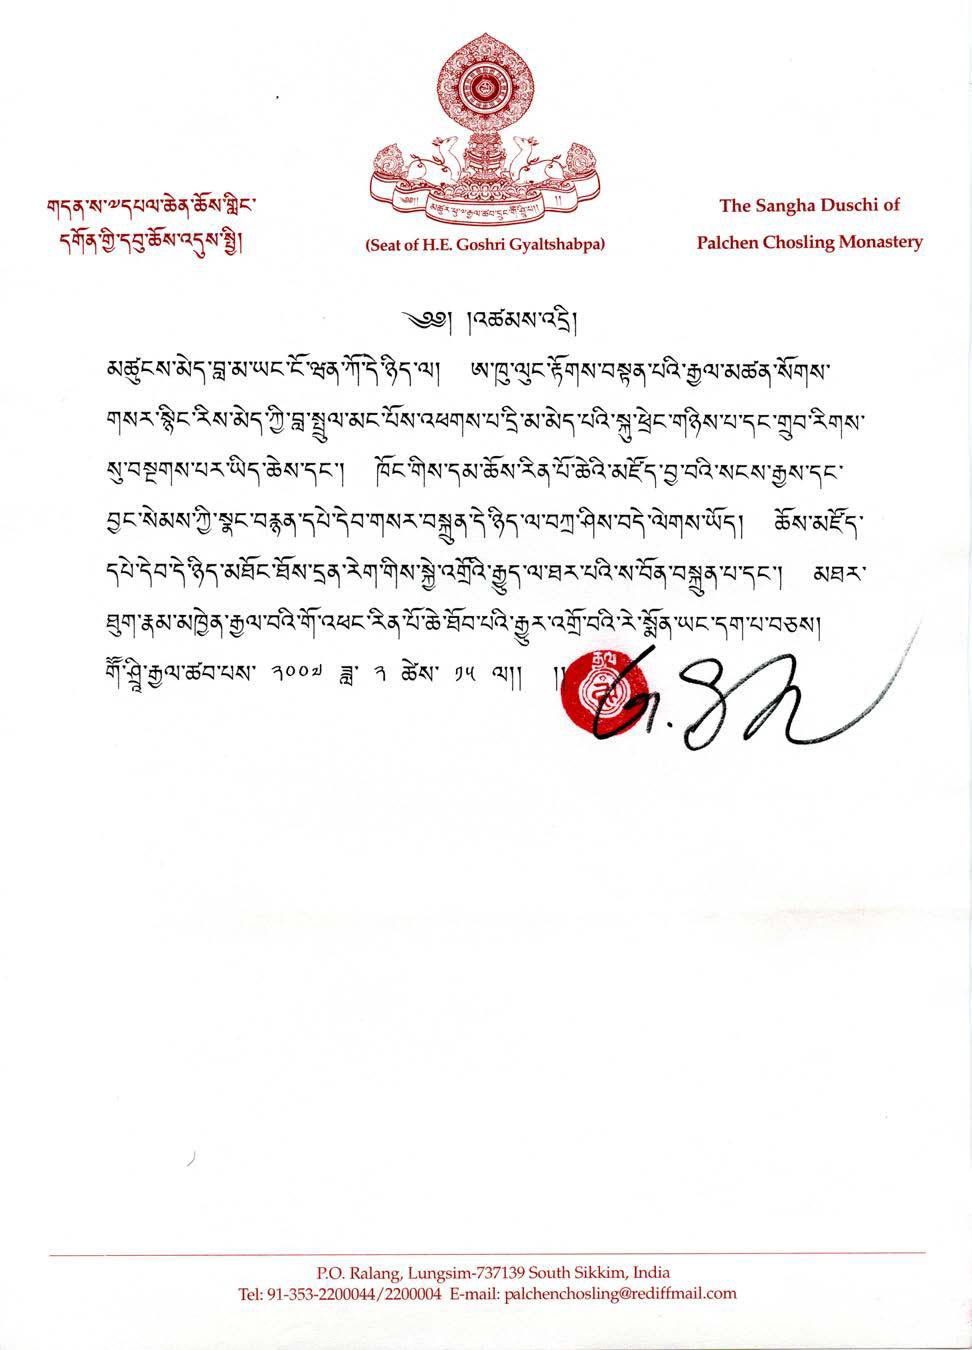 གདན་ས་༧དཔལ་ཆེན་ཆོས་གླིང་
དགོན་གྱི་དབུ་ཆོས་འདུས་སྤྱི།
༄༅།།
མཚུར་ཕུ་༧རྒྱལ་ཚབ་དྲུང་གོ་ཤྲཱི་པ།།
།།
(Seat of H.E. Goshri Gyaltshabpa)
The Sangha Duschi of
Palchen Chosling Monastery
༄༅། །འཚམས་འདྲི།
མཚུངས་མེད་བླ་མ་ཡང་ངོ་ཝན་ཀོ་དེ་ཉིད་ལ། ཨ་ཁུ་ལུང་རྟོགས་བསྟན་པའི་རྒྱལ་མཚན་སོགས་
གསར་རྙིང་རིས་མེད་ཀྱི་བླ་སྤྲུལ་མང་པོས་འཕགས་པ་དྲི་མ་མེད་པའི་སྐུ་ཕྲེང་གཉིས་པ་དང་གྲུབ་རིགས་
སུ་བསྔགས་པར་ཡིད་ཆེས་དང་། ཁོང་གིས་དམ་ཆོས་རིན་པོ་ཆེའི་མཛོད་བྱ་བའི་སངས་རྒྱས་དང་
བྱང་སེམས་ཀྱི་སྣང་བརྙན་དཔེ་དེབ་གསར་བསྐྲུན་དེ་ཉིད་ལ་བཀྲ་ཤིས་བདེ་ལེགས་ཡོད། ཆོས་མཛོད་
དཔེ་དེབ་དེ་ཉིད་མཐོང་ཐོས་དྲན་རེག་གིས་སྐྱེ་འགྲོའི་རྒྱུད་ལ་ཐར་པའི་ས་བོན་བསྐྲུན་པ་དང་། མཐར་
ཐུག་རྣམ་མཁྱེན་རྒྱལ་བའི་གོ་འཕང་རིན་པོ་ཆེ་ཐོབ་པའི་རྒྱུར་འགྲོ་བའི་རེ་སྨོན་ཡང་དག་པ་བཅས།
གོ་ཤྲཱི་རྒྱལ་ཚབ་པས་ ༢༠༠༧ ཟླ་ ༢ ཚེས་ ༡༥ ལ།། །།
རྒྱལ
P.O. Ralang, Lungsim-737139 South Sikkim, India
Tel: 91-353-2200044/2200004 E-mail: palchenchosling@rediffmail.com